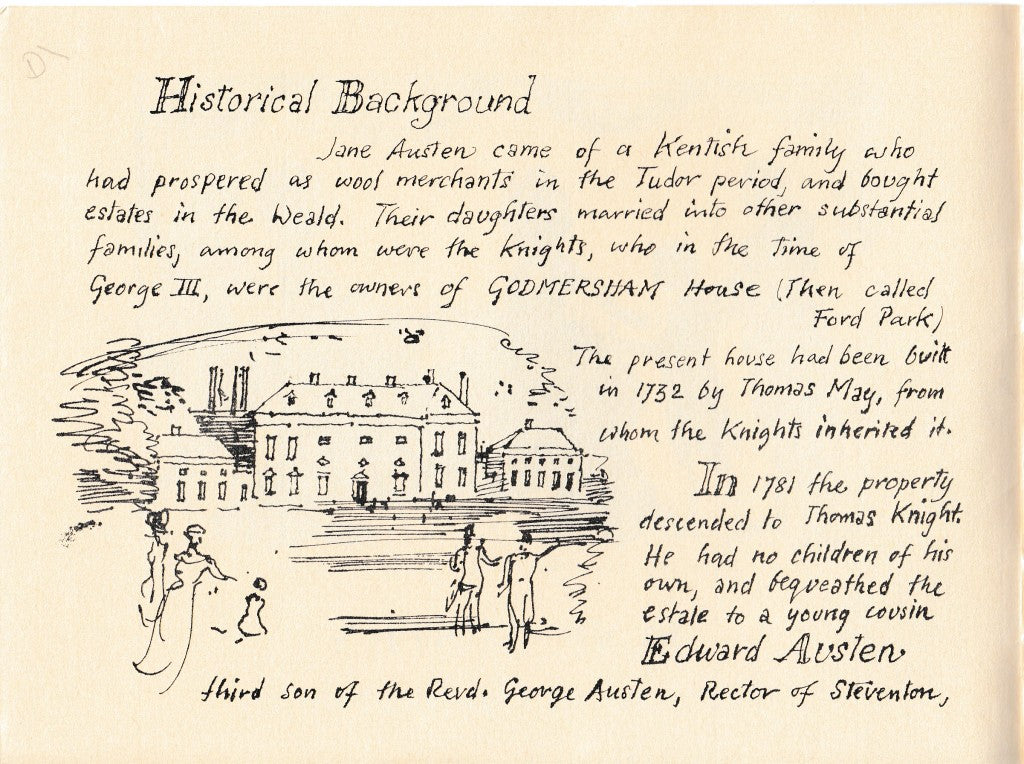 D1
Historical Background
Jane Austen came of a Kentish family who
had prospered as wool merchants in the Tudor period, and bought
estates in the Weald. Their daughters married into other substantial
families, among whom were the Knights, who in the time of
George III, were the owners of GODMERSHAM House (Then called
Ford Park)
The present house had been built
in 1732 by Thomas May, from
whom the Knights inherited it.
In 1781 the property
descended to Thomas Knight.
He had no children of his
own, and bequeathed the
estate to a young cousin
Edward Austen
third son of the Revd. George Austen, Rector of Steventon,